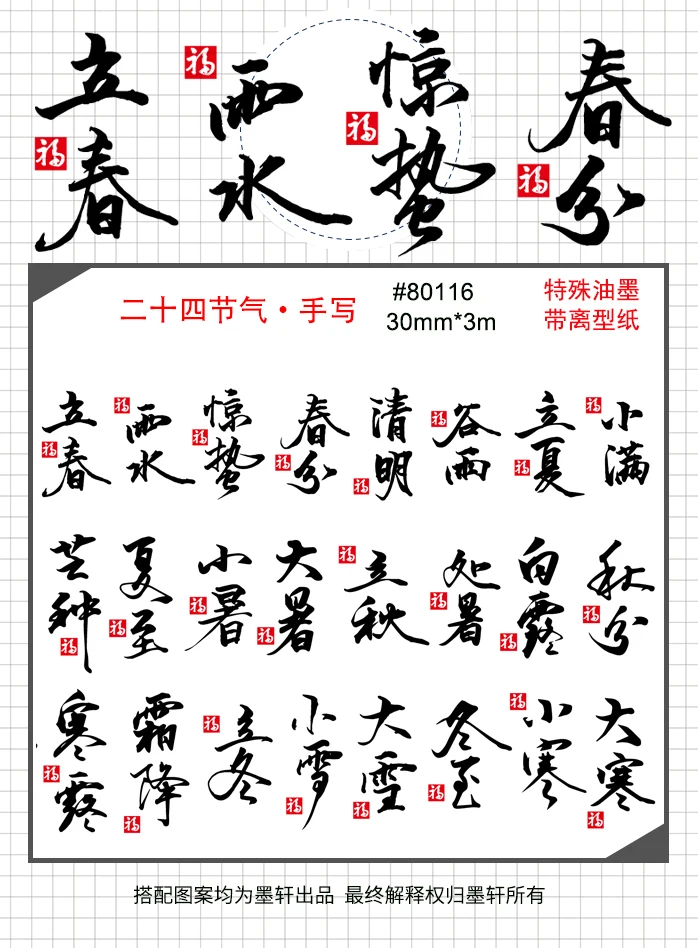 立春
福
雨水
福
惊蛰
福
春分
福
二十四节气·手写
#80116
30mm*3m
特殊油墨
带离型纸
立春
福
雨水
福
惊蛰
福
春分
福
清明
福
谷雨
福
立夏
福
小满
福
芒种
福
夏至
福
小暑
福
大暑
福
立秋
福
处暑
福
白露
福
秋分
福
寒露
福
霜降
福
立冬
福
小雪
福
大雪
福
冬至
福
小寒
福
大寒
福
搭配图案均为墨轩出品 最终解释权归墨轩所有